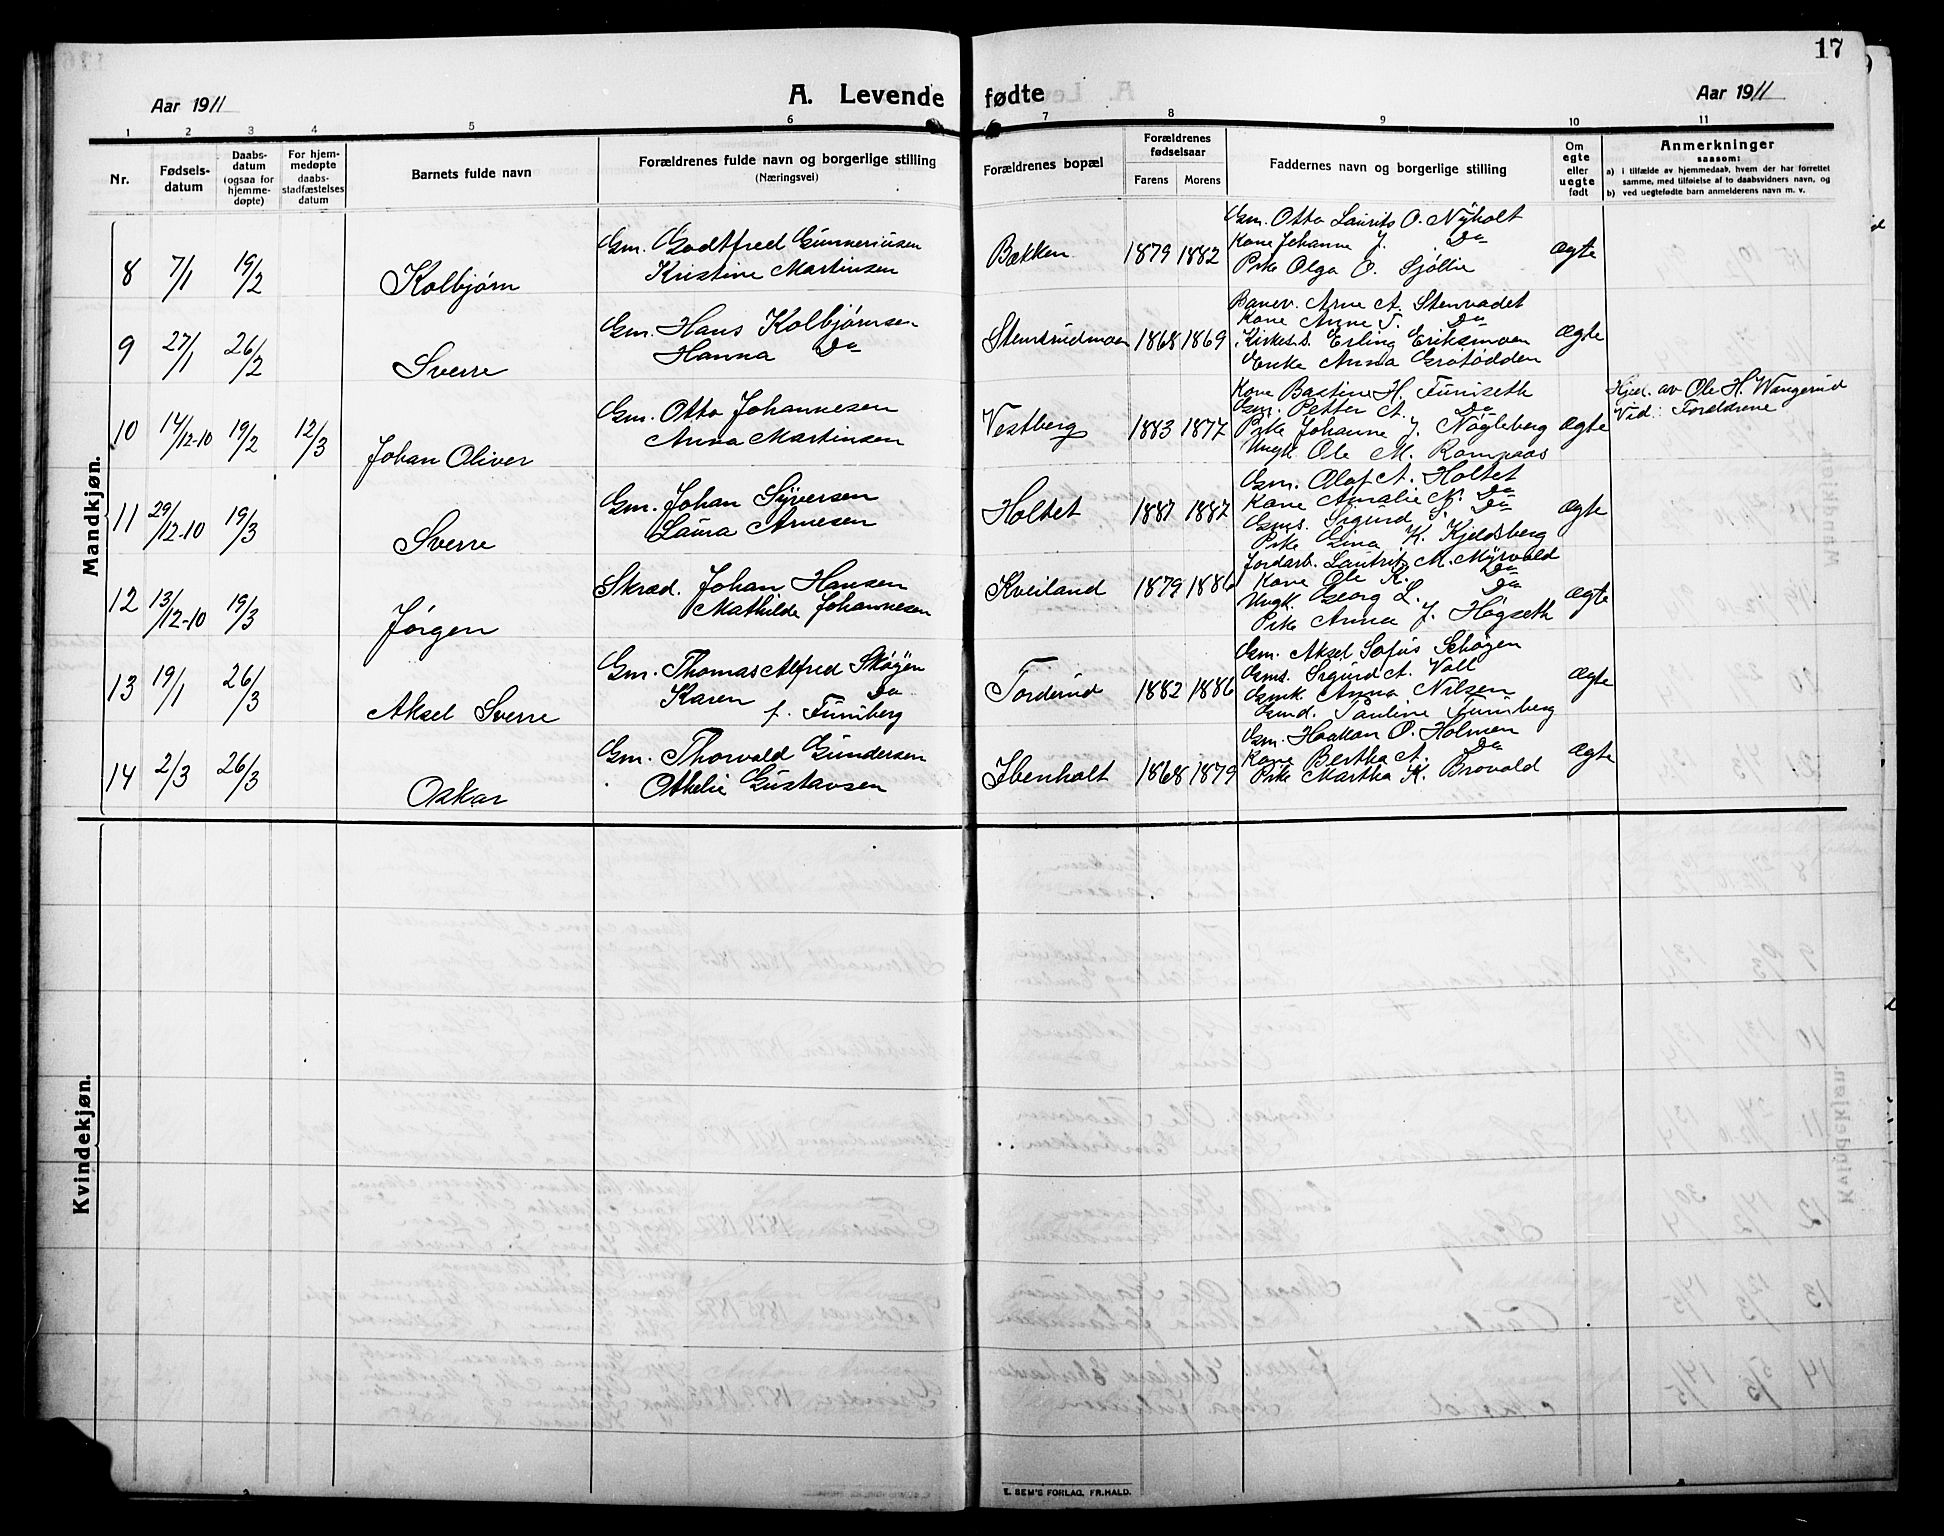 17
Aar 1911
A. Levende fødte
Aar 1911
1 2 3 4 5 6 7 8 9 10 11
Nr.
Fødselsdatum
Daabsdatum (ogsaa for hjemmedøpte)
For hjemmedøpte daabsstadfæstelses datum
Barnets fulde navn
Forældrenes fulde navn og borgerlige stilling
(Næringsvei)
Forældrenes bopæl
Forældrenes fødselsaar
Farens Morens
Faddernes navn og borgerlige stilling
Om egte eller uegte født
Anmerkninger
saasom:
a) i tilfælde av hjemmedaab, hvem der har forrettet samme, med tilføielse af to daabsvidners navn, og
b) ved uegtefødte barn anmelderens navn m. v.
Mandkjøn.
8 7/1 19/2 Kolbjørn
Gm. Godtfred Gunneriusen
Kristine Martinsen
Bakken 1879 1882
Gm. Otto Laurits O. Nyholt
Kone Johanne J. Do
Pike Olga O. Sjølie
Ægte
9 27/1 26/2 Sverre
Gm. Hans Kolbjørnsen
Hanna Do
Stensrudmoen 1868 1869
Banev. Arne A. Stenvadet
Kone Anne T. Do
Kirkes.s. Erling Eriksmoen
Enke Anna Grøtødden
Ægte
10 14/12-10 19/2 12/3 Johan Oliver
Gm. Otto Johannesen
Anna Martinsen
Vestberg 1883 1877
Kone Bastine H. Furuseth
Gm. Petter A. Do
Pike Johanne J. Nøgleberg
Ungk. Ole M. Rompaas
Ægte
Hjed. av Ole H. Wangerud
Vid: Foreldrene
11 29/12-10 19/3 Sverre
Gm. Johan Syversen
Laura Arnesen
Holtet 1887 1887
Gm. Olaf A. Holtet
Kone Amalie N. Do
Gms. Sigurd S. Do
Pike Gina K. Kjeldsberg
Ægte
12 13/12-10 19/3 Jørgen
Skræd. Johan Hansen
Mathilde Johannesen
Kveiland 1879 1886
Jordarb. Lauritz M. Myrvold
Kone Ole K. Do
Ungk. Georg L. Do
Pike Anna J. Høgseth
Ægte
13 19/1 26/3 Aksel Sverre
Gm. Thomas Alfred Skøyen
Karen Do
f. Furuberg
Torderud 1882 1886
Gm. Aksel Sofus Schøyen
Gms. Sigurd A. Voll
Gmk Anna Nilsen
Gmd. Pauline Furuberg
Ægte
14 2/3 26/3 Oskar
Gm. Thorvald Gundersen
Othelie Gustavsen
Ibenholt 1868 1879
Gm. Haakon O. Holmen
Kone Bertha A. Do
Pike Martha K. Brovold
Ægte
Kvindekjøn.
E. SEM'S FORLAG, FR.HALD.